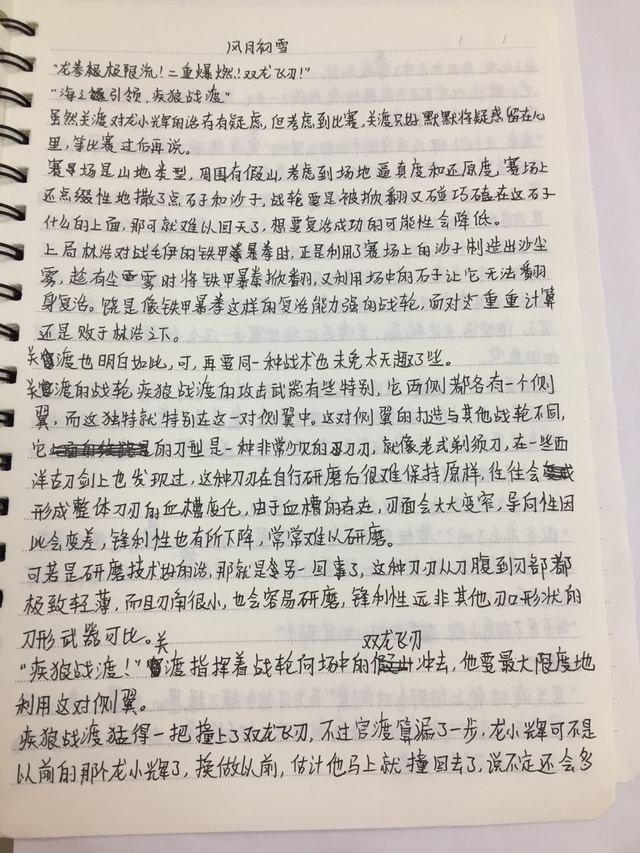 风月初雪
"龙卷极极限流！二重爆燃！双龙飞刃！"
"海之引领，疾狼战渡"
虽然关渡对龙小辉的治存有疑虑，但考虑到比赛，关渡只好默默将疑惑留在心
里，等比赛过后再说。
赛场是山地类型，周围有假山，考虑到场地逼真度和还原度，赛场上
还点缀性地撒了点石子和沙子，战轮要是被掀翻又碰巧磕在这石子
什么的上面，那可就难以回天了，想要复活成功的可能性会降低。
上局林浩对战毛伊的铁甲暴拳时，正是利用了赛场上的沙子制造出沙尘
雾，趁有尘雾时将铁甲暴拳掀翻，又利用场中的石子让它无法翻
身复活。饶是像铁甲暴拳这样的复活能力强的战轮，面对重重计算
还是败于林浩之下。
关渡也明白如此，可，再要同一种战术也未免太无趣了些。
关渡的战轮，疾狼战渡的攻击武器有些特别，它两侧都各有一个侧
翼，而这独特就特别在这一对侧翼中。这对侧翼的打造与其他战轮不同，
它的刀型是一种非常少见的刀刃，就像老式剃须刀，在一些西
洋古刀剑上也发现过，这种刀刃在自行研磨后很难保持原样，往往会
形成整体刀刃的血槽度化，由于血槽的存在，刃面会大大变窄，导向性因
此会变差，锋利性也有所下降，常常难以研磨。
可若是研磨技术好的治，那就是另一回事了，这种刀刃从刀腹到刃部都
极致轻薄，而且刃角很小，也会容易研磨，锋利性远非其他刃口形状的
刀形武器可比。
"疾狼战渡！"关渡指挥着战轮向场中的双龙飞刃冲去，他要最大限度地
利用这对侧翼。
疾狼战渡猛得一把撞上了双龙飞刃，不过官渡算漏了一步，龙小辉可不是
以前的那个龙小辉了，换做以前，估计他马上就撞回去了，说不定还会多